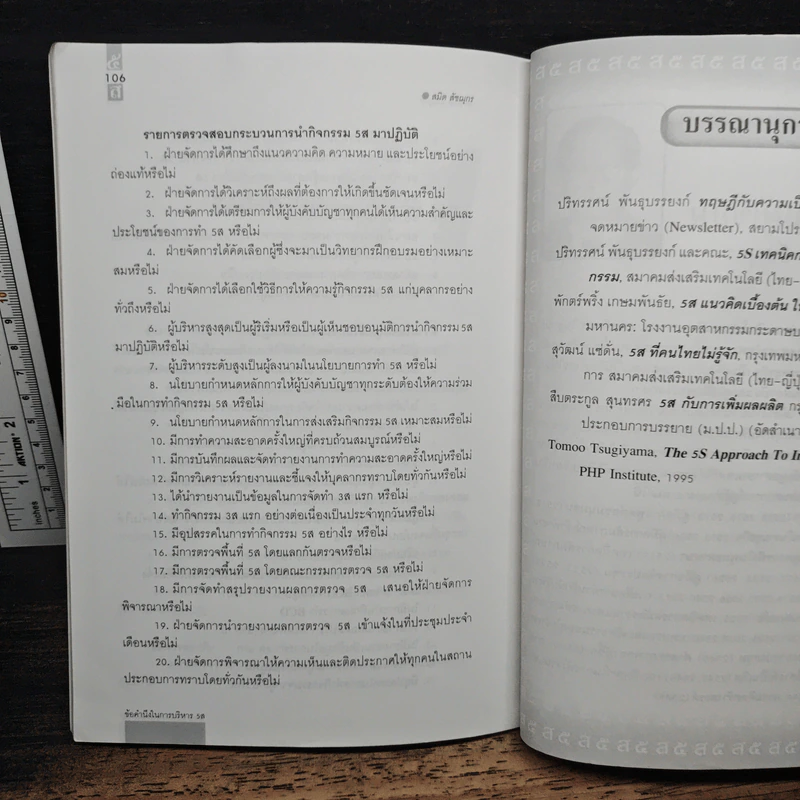 106
สมิต สัชฌุกร
รายการตรวจสอบกระบวนการนำกิจกรรม 5ส มาปฏิบัติ
1. ฝ่ายจัดการได้ศึกษาถึงแนวความคิด ความหมาย และประโยชน์อย่าง
ถ่องแท้หรือไม่
2. ฝ่ายจัดการได้วิเคราะห์ถึงผลที่ต้องการให้เกิดขึ้นชัดเจนหรือไม่
3. ฝ่ายจัดการได้เตรียมการให้ผู้บังคับบัญชาทุกคนได้เห็นความสำคัญและ
ประโยชน์ของการทำ 5ส หรือไม่
4. ฝ่ายจัดการได้คัดเลือกผู้ซึ่งจะมาเป็นวิทยากรฝึกอบรมอย่างเหมาะ
สมหรือไม่
5. ฝ่ายจัดการได้เลือกใช้วิธีการให้ความรู้กิจกรรม 5ส แก่บุคลากรอย่าง
ทั่วถึงหรือไม่
6. ผู้บริหารสูงสุดเป็นผู้ริเริ่มหรือเป็นผู้เห็นชอบอนุมัติการนำกิจกรรม 5ส
มาปฏิบัติหรือไม่
7. ผู้บริหารระดับสูงเป็นผู้ลงนามในนโยบายการทำ 5ส หรือไม่
8. นโยบายกำหนดหลักการให้ผู้บังคับบัญชาทุกระดับต้องให้ความร่วม
มือในการทำกิจกรรม 5ส หรือไม่
9. นโยบายกำหนดหลักการในการส่งเสริมกิจกรรม 5ส เหมาะสมหรือไม่
10. มีการทำความสะอาดครั้งใหญ่ที่ครบถ้วนสมบูรณ์หรือไม่
11. มีการบันทึกผลและจัดทำรายงานการทำความสะอาดครั้งใหญ่หรือไม่
12. มีการวิเคราะห์รายงานและชี้แจงให้บุคลากรทราบโดยทั่วกันหรือไม่
13. ได้นำรายงานเป็นข้อมูลในการจัดทำ 3ส แรก หรือไม่
14. ทำกิจกรรม 3ส แรก อย่างต่อเนื่องเป็นประจำทุกวันหรือไม่
15. มีอุปสรรคในการทำกิจกรรม 5ส อย่างไร หรือไม่
16. มีการตรวจพื้นที่ 5ส โดยแลกกันตรวจหรือไม่
17. มีการตรวจพื้นที่ 5ส โดยคณะกรรมการตรวจ 5ส หรือไม่
18. มีการจัดทำสรุปรายงานผลการตรวจ 5ส เสนอให้ฝ่ายจัดการ
พิจารณาหรือไม่
19. ฝ่ายจัดการนำรายงานผลการตรวจ 5ส เข้าแจ้งในที่ประชุมประจำ
เดือนหรือไม่
20. ฝ่ายจัดการพิจารณาให้ความเห็นและติดประกาศให้ทุกคนในสถาน
ประกอบการทราบโดยทั่วกันหรือไม่
ข้อคำนึงในการบริหาร 5ส
บรรณานุกร
ปริทรรศน์ พันธุบรรยงก์ ทฤษฎีกับความเป็
จดหมายข่าว (Newsletter), สยามโปร
ปริทรรศน์ พันธุบรรยงก์ และคณะ, 5S เทคนิคก
กรรม, สมาคมส่งเสริมเทคโนโลยี (ไทย-
พักตร์พริ้ง เกษมพันธัย, 5ส แนวคิดเบื้องต้น ใ
มหานคร: โรงงานอุตสาหกรรมกระดาษบ
สุวัฒน์ แซ่ตั่น, 5ส ที่คนไทยไม่รู้จัก, กรุงเทพมห
การ สมาคมส่งเสริมเทคโนโลยี (ไทย-ญี่ปุ่
สืบตระกูล สุนทรศร 5ส กับการเพิ่มผลผลิต กรุ
ประกอบการบรรยาย (ม.ป.ป.) (อัดสำเนา
Tomoo Tsugiyama, The 5S Approach To In
PHP Institute, 1995